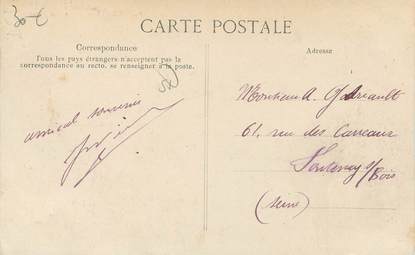 30 €
CARTE POSTALE
Correspondance
Tous les pays étrangers n'acceptent pas la
correspondance au recto. se renseigner à la poste.
amical souvenir
Adresse
Monsieur A.
61, rue des Carreaux
Fontenay s/ Bois
(Seine)